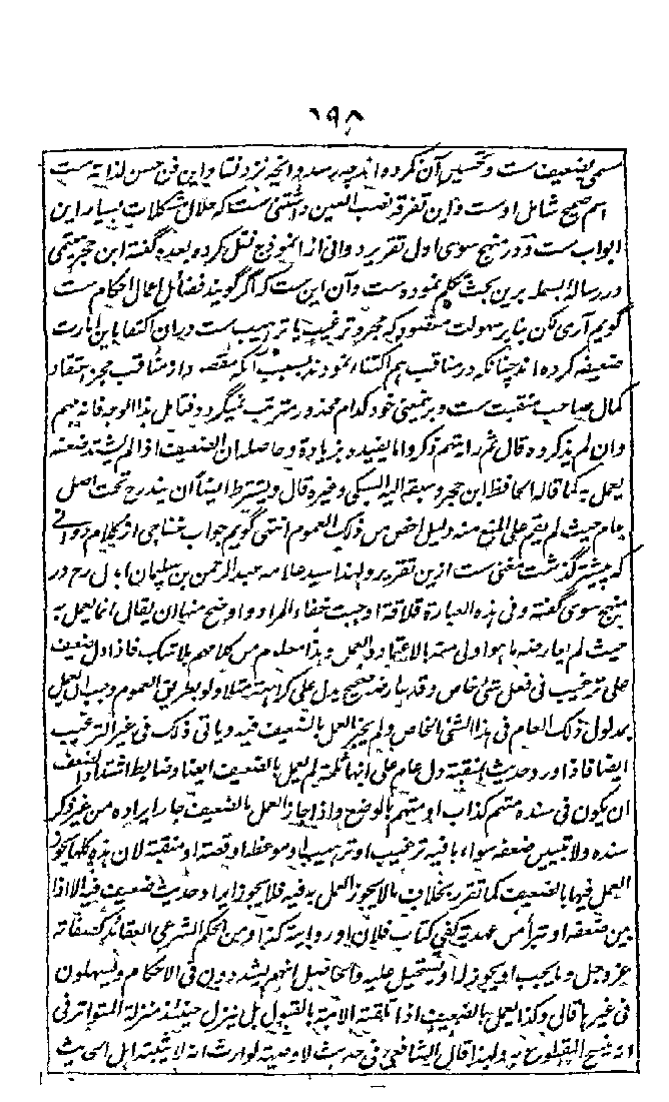 ۱۹۸
مسمی بضعیف ست و تحسین آن کرده اند چه رسد و انچه نزد لقا و این فن حسن لذاته ست
اسم صحیح شامل اوست و این تفرقه نصب العین داشتنی ست که حلال مشکلات بسیار این
ابواب ست و در منهج سوی اول تقریر دوانی از انموذج نقل کرده بعده گفته ابن حجر هیتمی
در رسالهٔ بسمله برین بحث تکلم نموده ست و آن این ست که اگر گویند فضائل اعمال احکام ست
گویم آری لکن بنا بر سهولت مقصود که مجرد ترغیب یا ترهیب ست دران اکتفا باین امارت
ضعیفه کرده اند چنانکه در مناقب هم اکتفاء نمودند بسبب آنکه مقصد دار مناقب مجرد اعتقاد
کمال صاحب منقبت ست و برینمعنی خود کدام محذور مترتب نمیگردد فتامل هذا الوجه فانه مهم
وان لم یذکروه قال ثم رایتهم ذکروا ما یفیده بزیادة و حاصله ان الضعیف اذا لم یشتد ضعفه
یعمل به کما قاله الحافظ ابن حجر و سبقه الیه السبکی و غیره قال و یشترط ایضاً ان یندرج تحت اصل
عام حیث لم یقم علی المنع منه دلیل اخص من ذلک العموم انتهی گویم جواب خفاجی از کلام دوانی
که پیشتر گذشت مغنی ست ازین تقریر و لهذا سید علامه عبد الرحمن بن سلیمان اهدل رح در
منهج سوی گفته و فی هذه العبارة قلاقة اوجبت خفاء المراد و اوضح منها ان یقال انما یعمل به
حیث لم یعارضه ما هو اولی منه بالاعتبار و العمل و هذا معلوم من کلامهم بلا شک فاذا دل ضعیف
علی ترغیب فی فعل شئ خاص و قد عارضه صحیح یدل علی کراهیته مثلا ولو بطریق العموم وجب العمل
بمدلول ذلک العام فی هذا الشئ الخاص ولم یجز العمل بالضعیف فیه و یاتی ذلک فی غیر الترغیب
ایضا فاذا ورد حدیث بمنقبة دل عام علی انها مثلمة لم یعمل بالضعیف ایضا و ضابط اشتداد الضعف
ان یکون فی سنده متهم کذاب او متهم بالوضع و اذا جاز العمل بالضعیف جاز ایراده من غیر ذکر
سنده ولا تبیین ضعفه سواء ما فیه ترغیب او ترهیب او موعظة او قصة او منقبة لان هذه کلها یجوز
العمل فیها بالضعیف کما تقرر بخلاف ما لا یجوز العمل به فیه فلا یجوز ایراد حدیث ضعیف فیه الا اذا
بین ضعفه او تبرأ من عهدته ککفی کتاب فلان او روایته کذا و من الحکم الشرعی العقائد کصفاته
عز و جل و ما یجب او یجوز له او یستحیل علیه و الحاصل انهم یشددون فی الاحکام و یسهلون
فی غیرها قال و کذا یعمل بالضعیف اذا تلقته الامة بالقبول بل ینزل حینئذ منزلة المتواتر فی
انه ینسخ المقطوع به و لهذا قال الشافعی فی حدیث لا وصیة لوارث انه لا یثبته اهل الحدیث